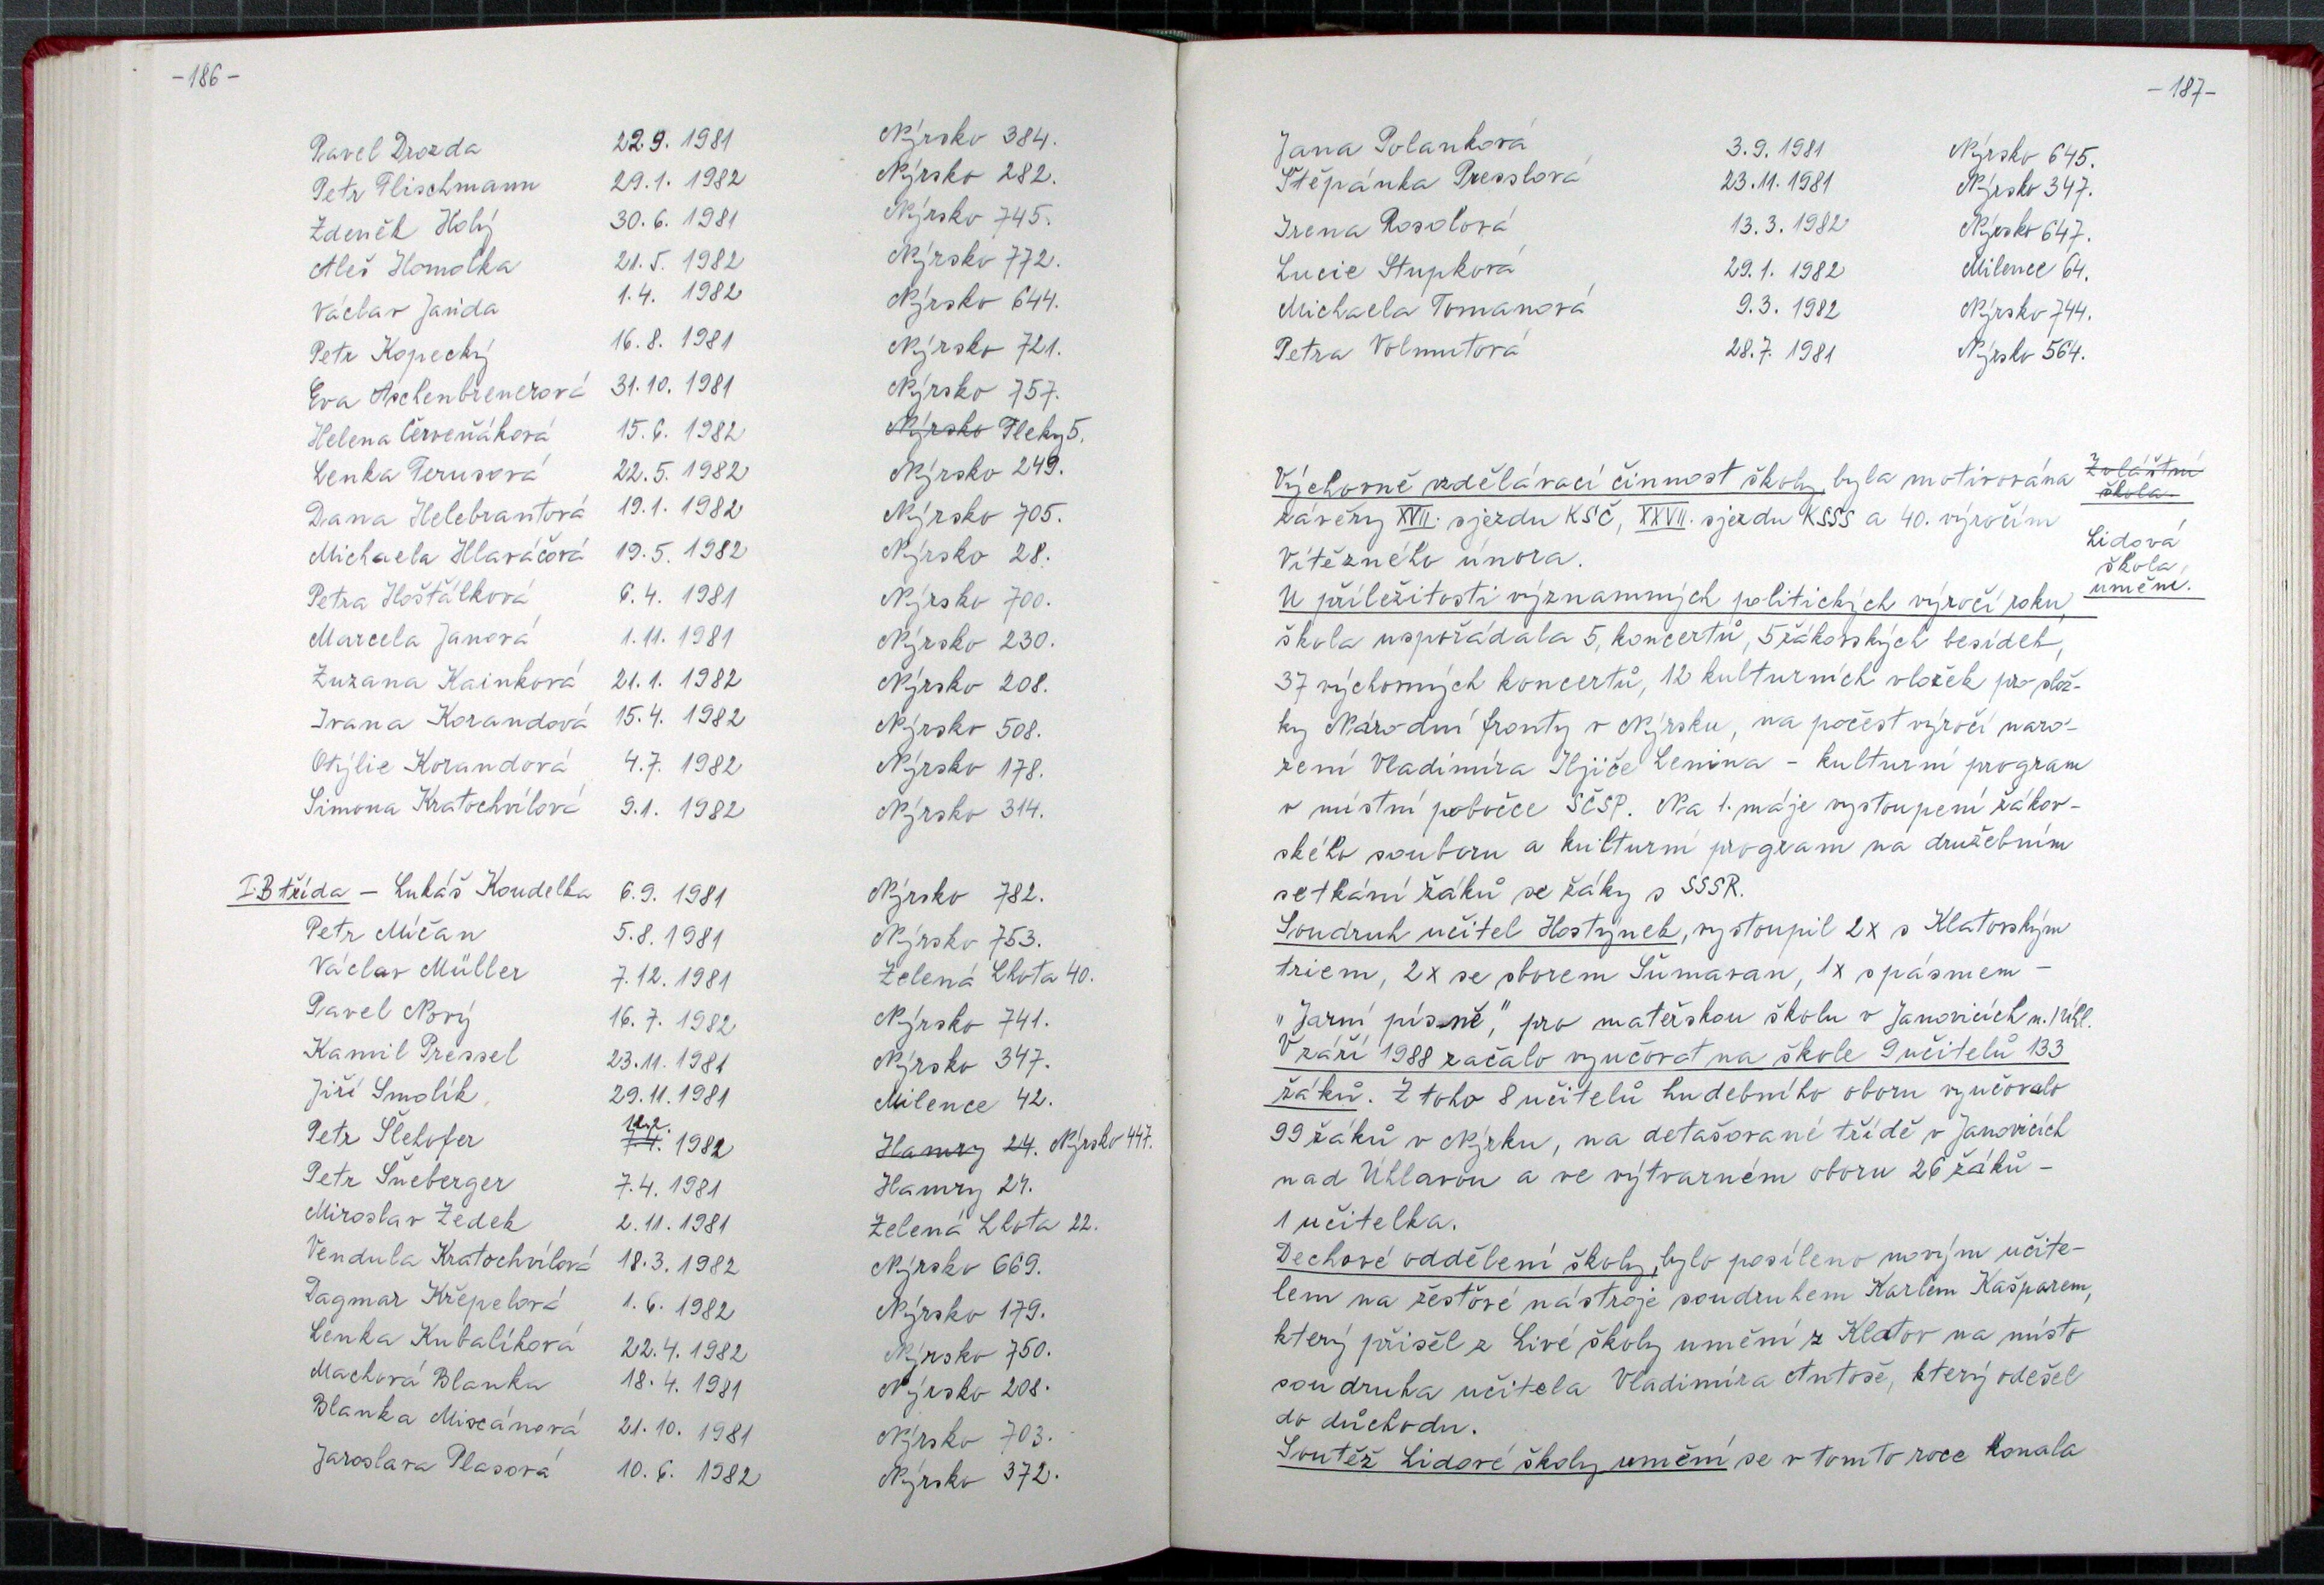 -186-
Pavel Drozda 22.9. 1981 Nýrsko 384.
Petr Flischmann 29.1. 1982 Nýrsko 282.
Zdeněk Holý 30.6. 1981 Nýrsko 745.
Aleš Homolka 21.5. 1982 Nýrsko 772.
Václav Janda 1.4. 1982 Nýrsko 644.
Petr Kopecký 16.8. 1981 Nýrsko 721.
Eva Aschenbrenerová 31.10. 1981 Nýrsko 757.
Helena Červeňáková 15.6. 1982 Nýrsko Fleky 5.
Lenka Ferusová 22.5. 1982 Nýrsko 249.
Dana Helebrantová 19.1. 1982 Nýrsko 705.
Michaela Hlaváčová 19.5. 1982 Nýrsko 28.
Petra Hošťálková 6.4. 1981 Nýrsko 700.
Marcela Janová 1.11. 1981 Nýrsko 230.
Zuzana Kainková 21.1. 1982 Nýrsko 208.
Ivana Korandová 15.4. 1982 Nýrsko 508.
Otýlie Korandová 4.7. 1982 Nýrsko 178.
Simona Kratochvílová 9.1. 1982 Nýrsko 314.
I.B třída - Lukáš Koudelka 6.9. 1981 Nýrsko 782.
Petr Míčan 5.8. 1981 Nýrsko 753.
Václav Müller 7.12. 1981 Zelená Lhota 40.
Pavel Nový 16.7. 1982 Nýrsko 741.
Kamil Pressel 23.11. 1981 Nýrsko 347.
Jiří Smolík 29.11. 1981 Milence 42.
Petr Šlehofer 12.2. 1982 Hamry 24. Nýrsko 447.
Petr Šneberger 7.4. 1981 Hamry 24.
Miroslav Zedek 2.11. 1981 Zelená Lhota 22.
Vendula Kratochvílová 18.3. 1982 Nýrsko 669.
Dagmar Křepelová 1.6. 1982 Nýrsko 179.
Lenka Kubalíková 22.4. 1982 Nýrsko 750.
Machová Blanka 18.4. 1981 Nýrsko 208.
Blanka Miscánová 21.10. 1981 Nýrsko 703.
Jaroslava Plasová 10.6. 1982 Nýrsko 372.
-187-
Jana Polanková 3.9. 1981 Nýrsko 645.
Štěpánka Presslová 23.11. 1981 Nýrsko 347.
Irena Rosolová 13.3. 1982 Nýrsko 647.
Lucie Stupková 29.1. 1982 Milence 64.
Michaela Tomanová 9.3. 1982 Nýrsko 744.
Petra Volmutová 28.7. 1981 Nýrsko 564.
Výchovně vzdělávací činnost školy, byla motivována
závěry XVII. sjezdu KSČ, XXVII. sjezdu KSSS a 40. výročím
Vítězného února.
U příležitosti významných politických výročí roku,
škola uspořádala 5, koncertů, 5 žákovských besídek,
37 výchovných koncertů, 12 kulturních vložek pro slož-
ky Národní fronty v Nýrsku, na počest výročí naro-
zení Vladimíra Iljiče Lenina - kulturní program
v místní pobočce SČSP. Na 1. máje vystoupení žákov-
ského souboru a kulturní program na družebním
setkání žáků se žáky s SSSR.
Soudruh učitel Hostýnek, vystoupil 2x s Klatovským
triem, 2x se sborem Šumavan, 1x s pásmem -
"Jarní písně," pro mateřskou školu v Janovicích n./Úhl.
V září 1988 začalo vyučovat na škole 9 učitelů 133
žáků. Z toho 8 učitelů hudebního oboru vyučovalo
99 žáků v Nýrku, na detašované třídě v Janovicích
nad Úhlavou a ve výtvarném oboru 26 žáků -
1 učitelka.
Dechové oddělení školy, bylo posíleno novým učite-
lem na žesťové nástroje soudruhem Karlem Kašparem,
který přišěl z Livé školy umění z Klatov na místo
soudruha učitela Vladimíra Antoše, který odešel
do důchodu.
Soutěž Lidové školy umění se v tomto roce konala
Zvláštní
škola.
Lidová
škola
umění.